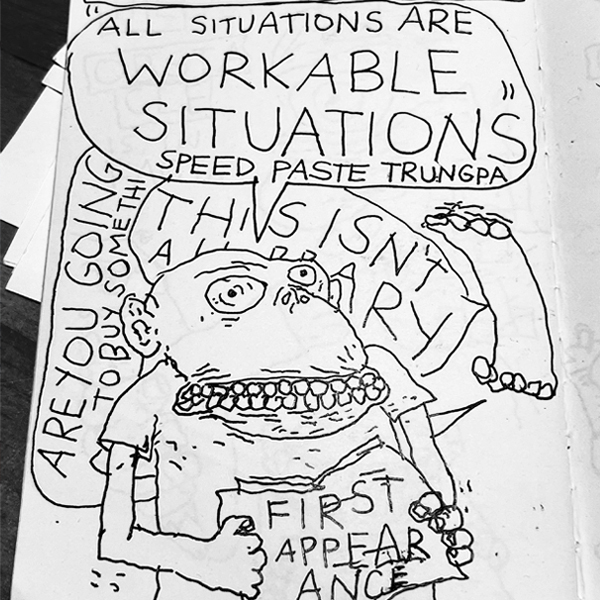 "ALL SITUATIONS ARE
WORKABLE
SITUATIONS"
SPEED PASTE TRUNGPA
ARE YOU GOING
TO BUY SOMETHI
THIS ISN'T
A LIBRARY
FIRST
APPEAR
ANCE